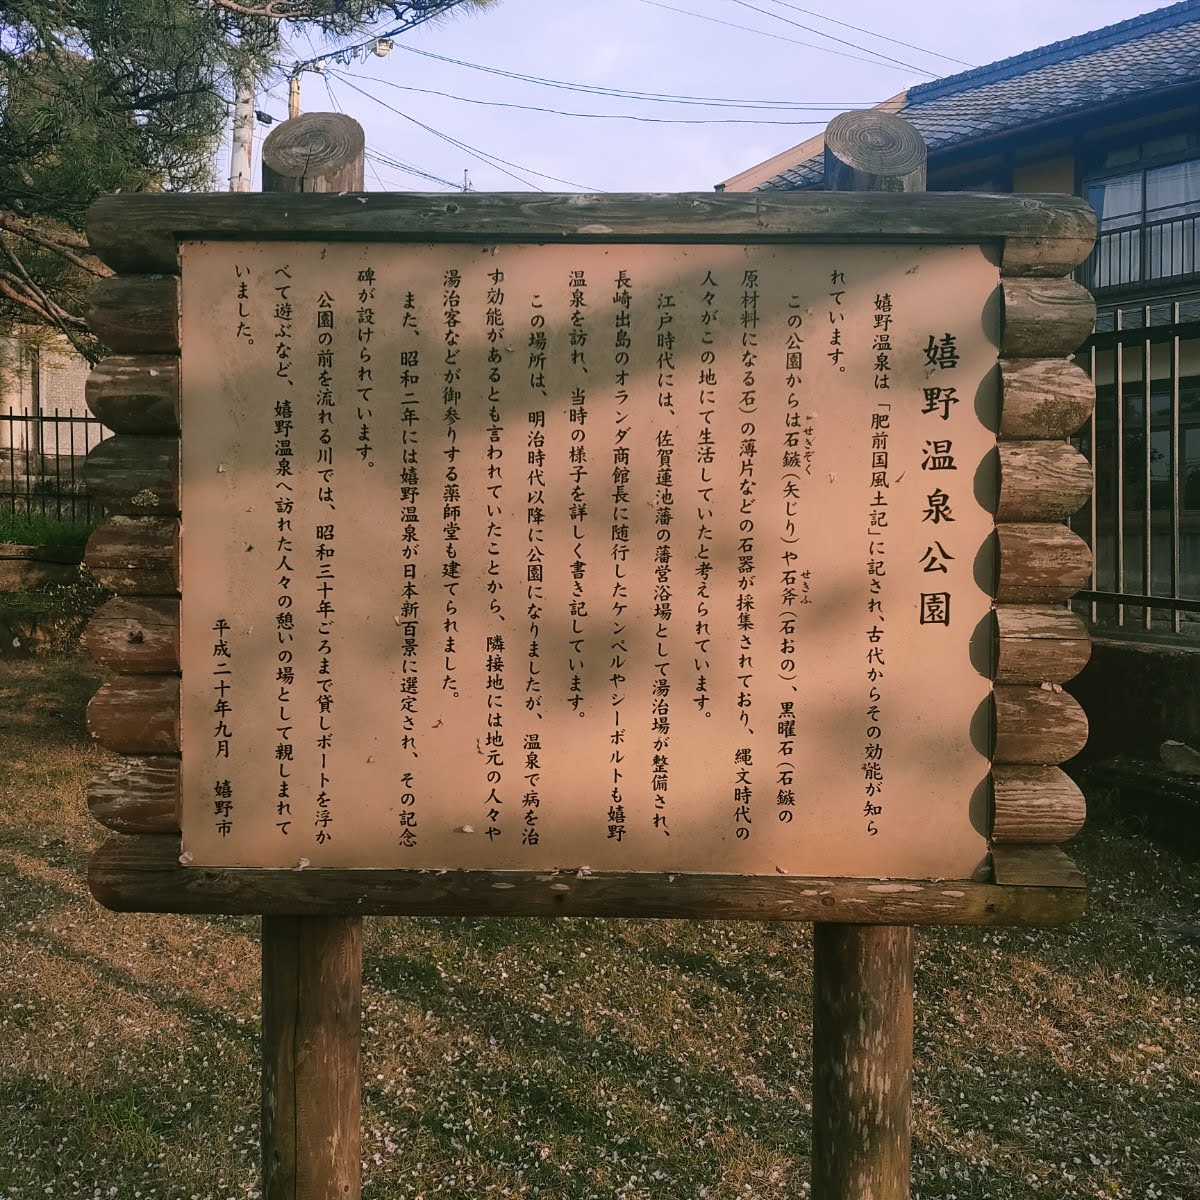 嬉野温泉公園
嬉野温泉は「肥前国風土記」に記され、古代からその効能が知ら
れています。
この公園からは石鏃（矢じり）や石斧（石おの）、黒曜石（石鏃の
せきぞく
せきふ
原材料になる石）の薄片などの石器が採集されており、縄文時代の
人々がこの地にて生活していたと考えられています。
江戸時代には、佐賀蓮池藩の藩営浴場として湯治場が整備され、
長崎出島のオランダ商館長に随行したケンペルやシーボルトも嬉野
温泉を訪れ、当時の様子を詳しく書き記しています。
この場所は、明治時代以降に公園になりましたが、温泉で病を治
す効能があるとも言われていたことから、隣接地には地元の人々や
湯治客などが御参りする薬師堂も建てられました。
また、昭和二年には嬉野温泉が日本新百景に選定され、その記念
碑が設けられています。
公園の前を流れる川では、昭和三十年ごろまで貸しボートを浮か
べて遊ぶなど、嬉野温泉へ訪れた人々の憩いの場として親しまれて
いました。
平成二十年九月　嬉野市